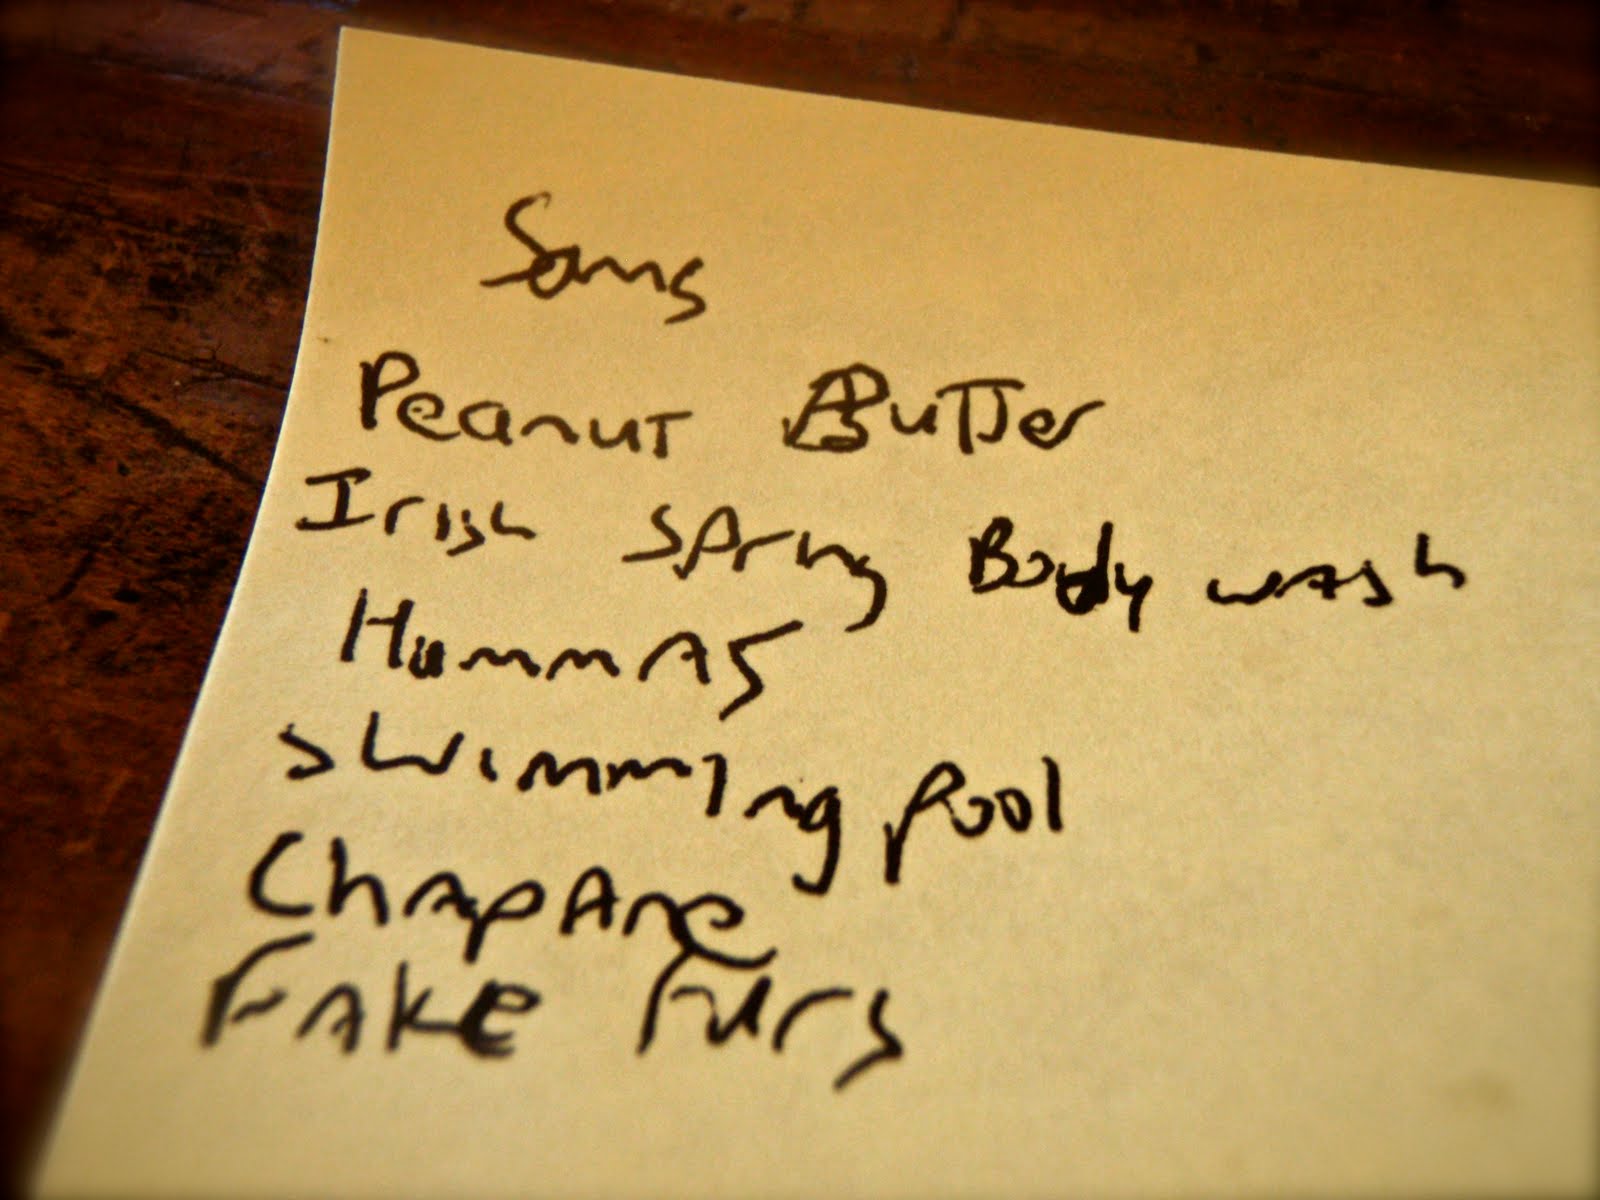 Sams
Peanut Butter
Irish Spring Body wash
Hummas
swimming pool
Chapane
Fake Furs